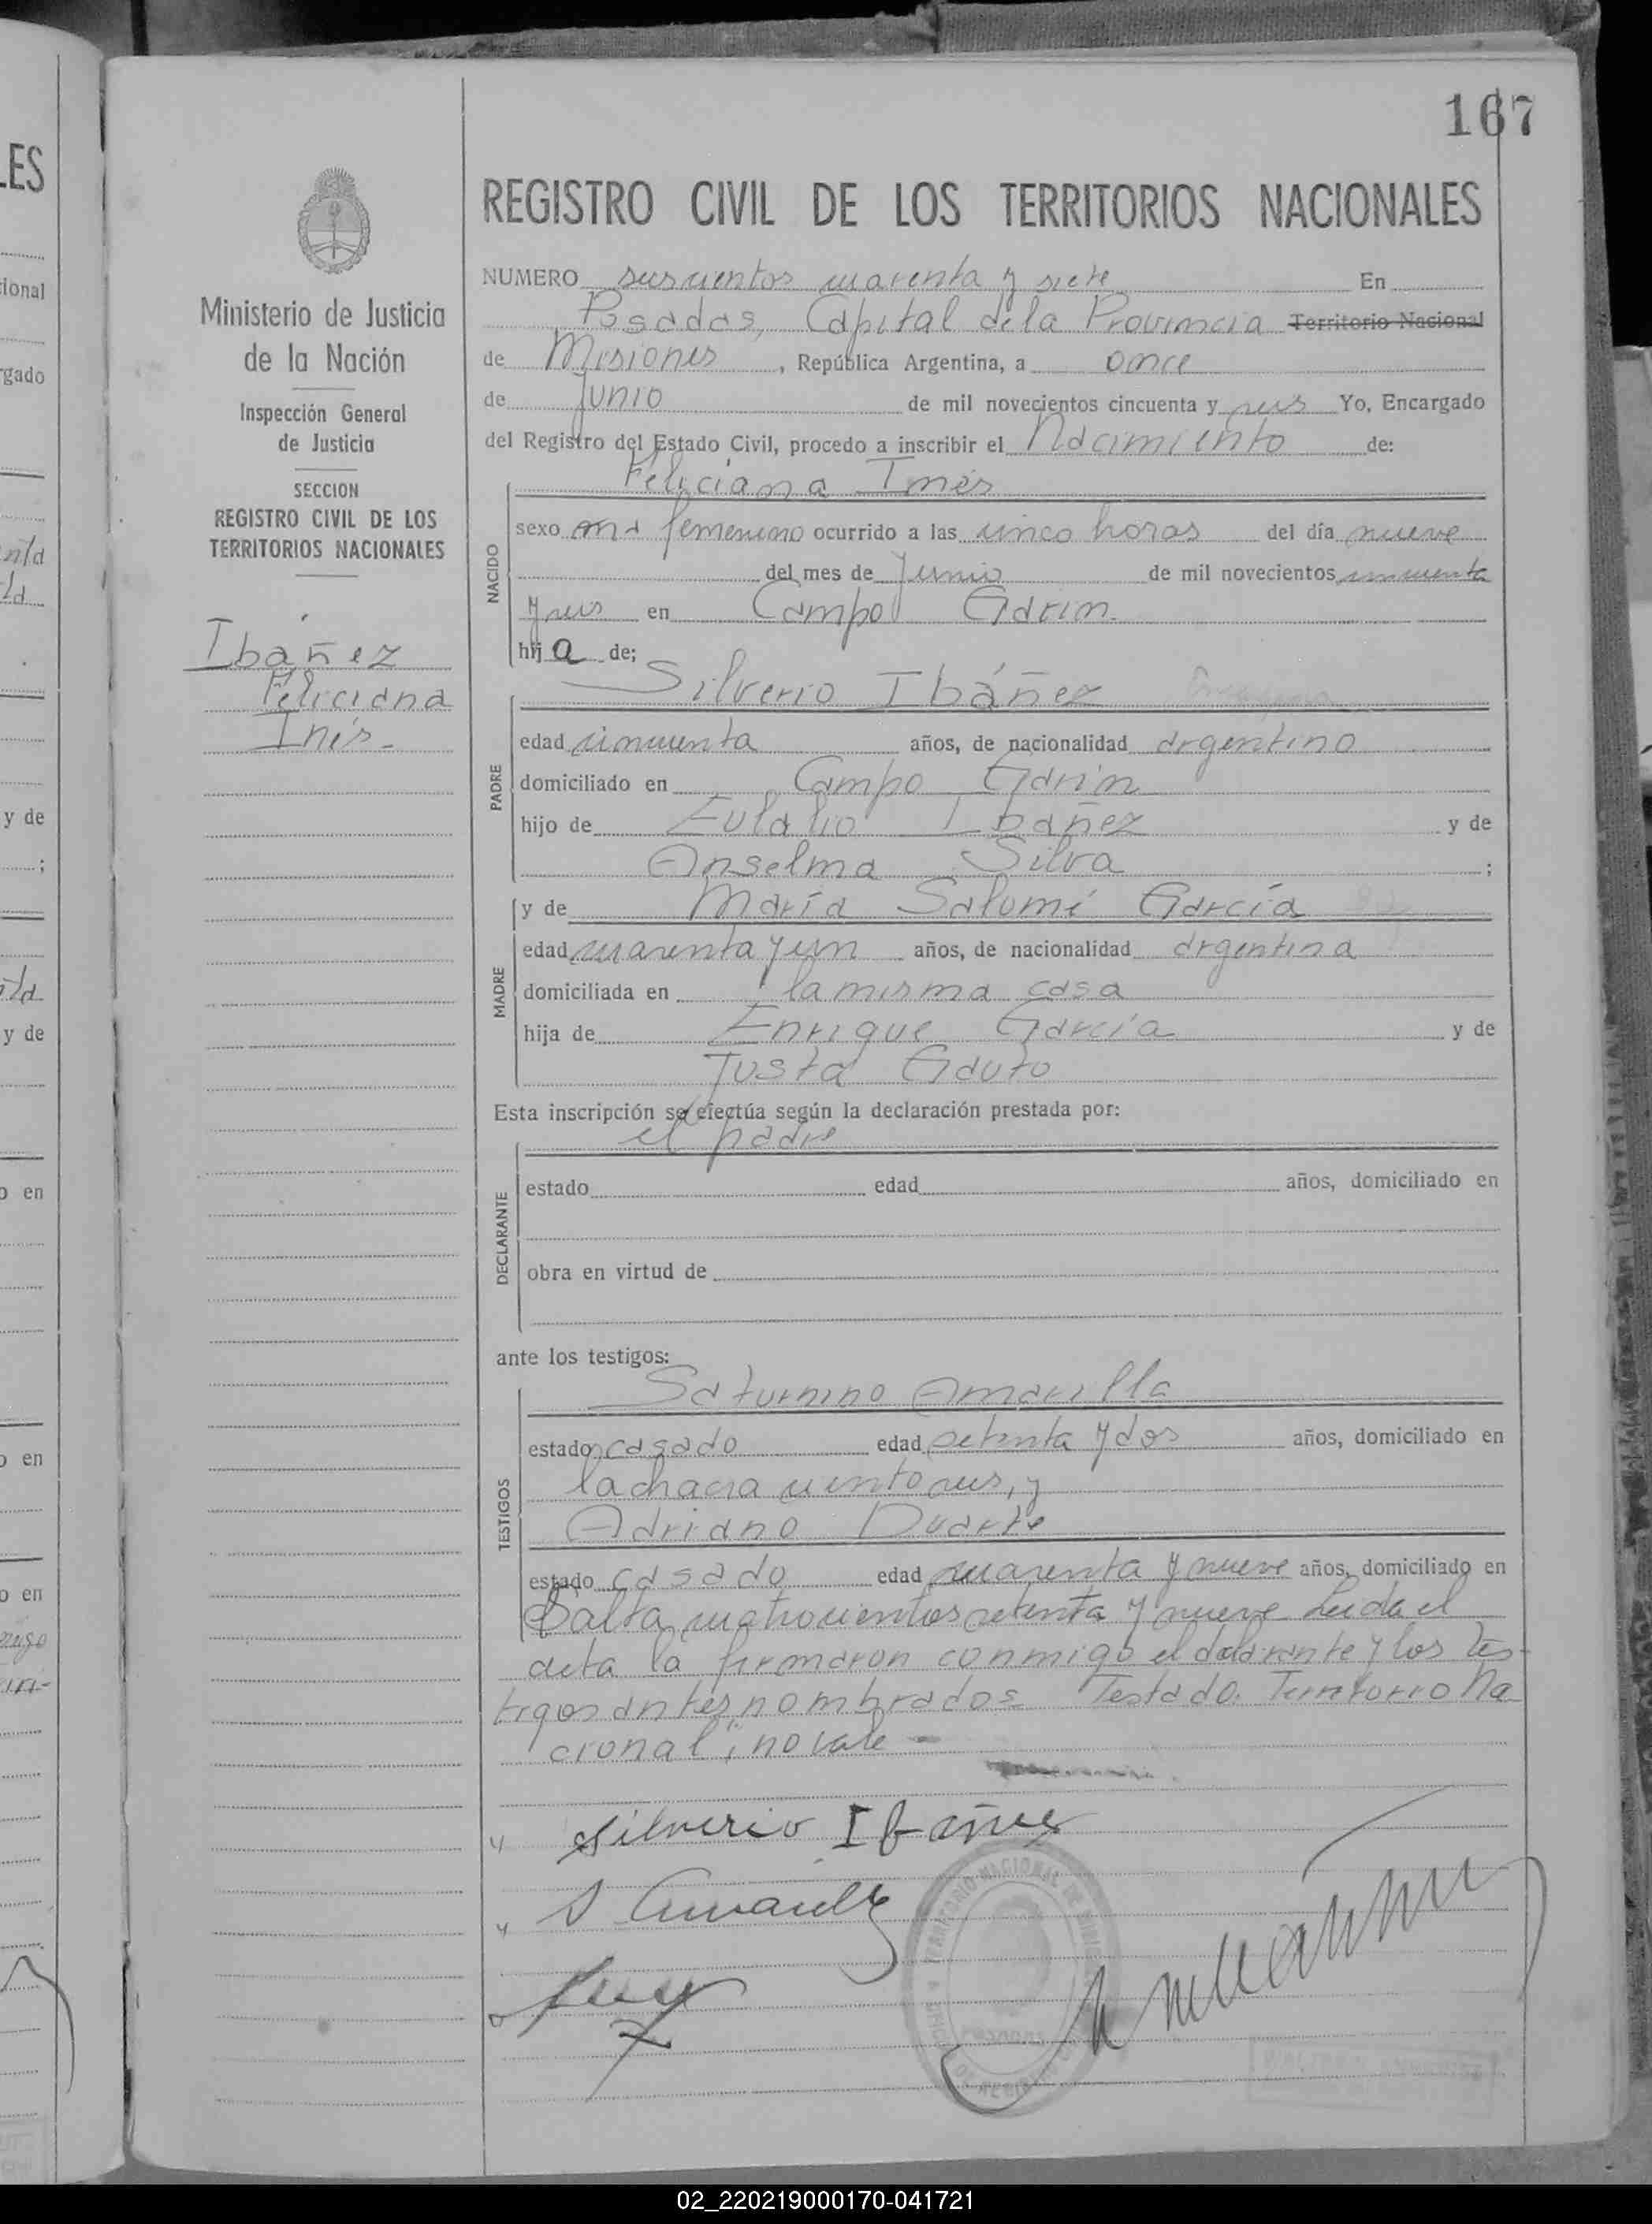 167
REGISTRO CIVIL DE LOS TERRITORIOS NACIONALES
Ministerio de Justicia
de la Nación
Inspección General
de Justicia
SECCION
REGISTRO CIVIL DE LOS
TERRITORIOS NACIONALES
Ibáñez
Feliciana
Inés.-
NUMERO seiscientos cuarenta y siete En
Posadas, Capital de la Provincia Territorio Nacional
de Misiones, República Argentina, a once
de junio de mil novecientos cincuenta y seis Yo, Encargado
del Registro del Estado Civil, procedo a inscribir el Nacimiento de:
Feliciana Inés
NACIDO
sexo femenino ocurrido a las cinco horas del día nueve
del mes de Junio de mil novecientos cincuenta
y seis en Campo Garin.
hija de;
Silverio Ibáñez
PADRE
edad cincuenta años, de nacionalidad argentino
domiciliado en Campo Garin
hijo de Eulalio Ibáñez y de
Anselma Silva ;
y de María Salomé García
MADRE
edad cuarenta y un años, de nacionalidad argentina
domiciliada en la misma casa
hija de Enrique García y de
Justa Gauto
Esta inscripción se efectúa según la declaración prestada por:
el padre
DECLARANTE
estado edad años, domiciliado en
obra en virtud de
ante los testigos:
Saturnino Amarilla
TESTIGOS
estado casado edad setenta y dos años, domiciliado en
la chacra ciento seis, y
Adriano Duarte
estado casado edad cuarenta y nueve años, domiciliado en
Salta cuatrocientos setenta y nueve Leida el
acta la firmaron conmigo el declarante y los tes-
tigos antes nombrados = Testado: Territorio Na
cional; no vale -
Silverio Ibañez
S Amarilla
02_220219000170-041721